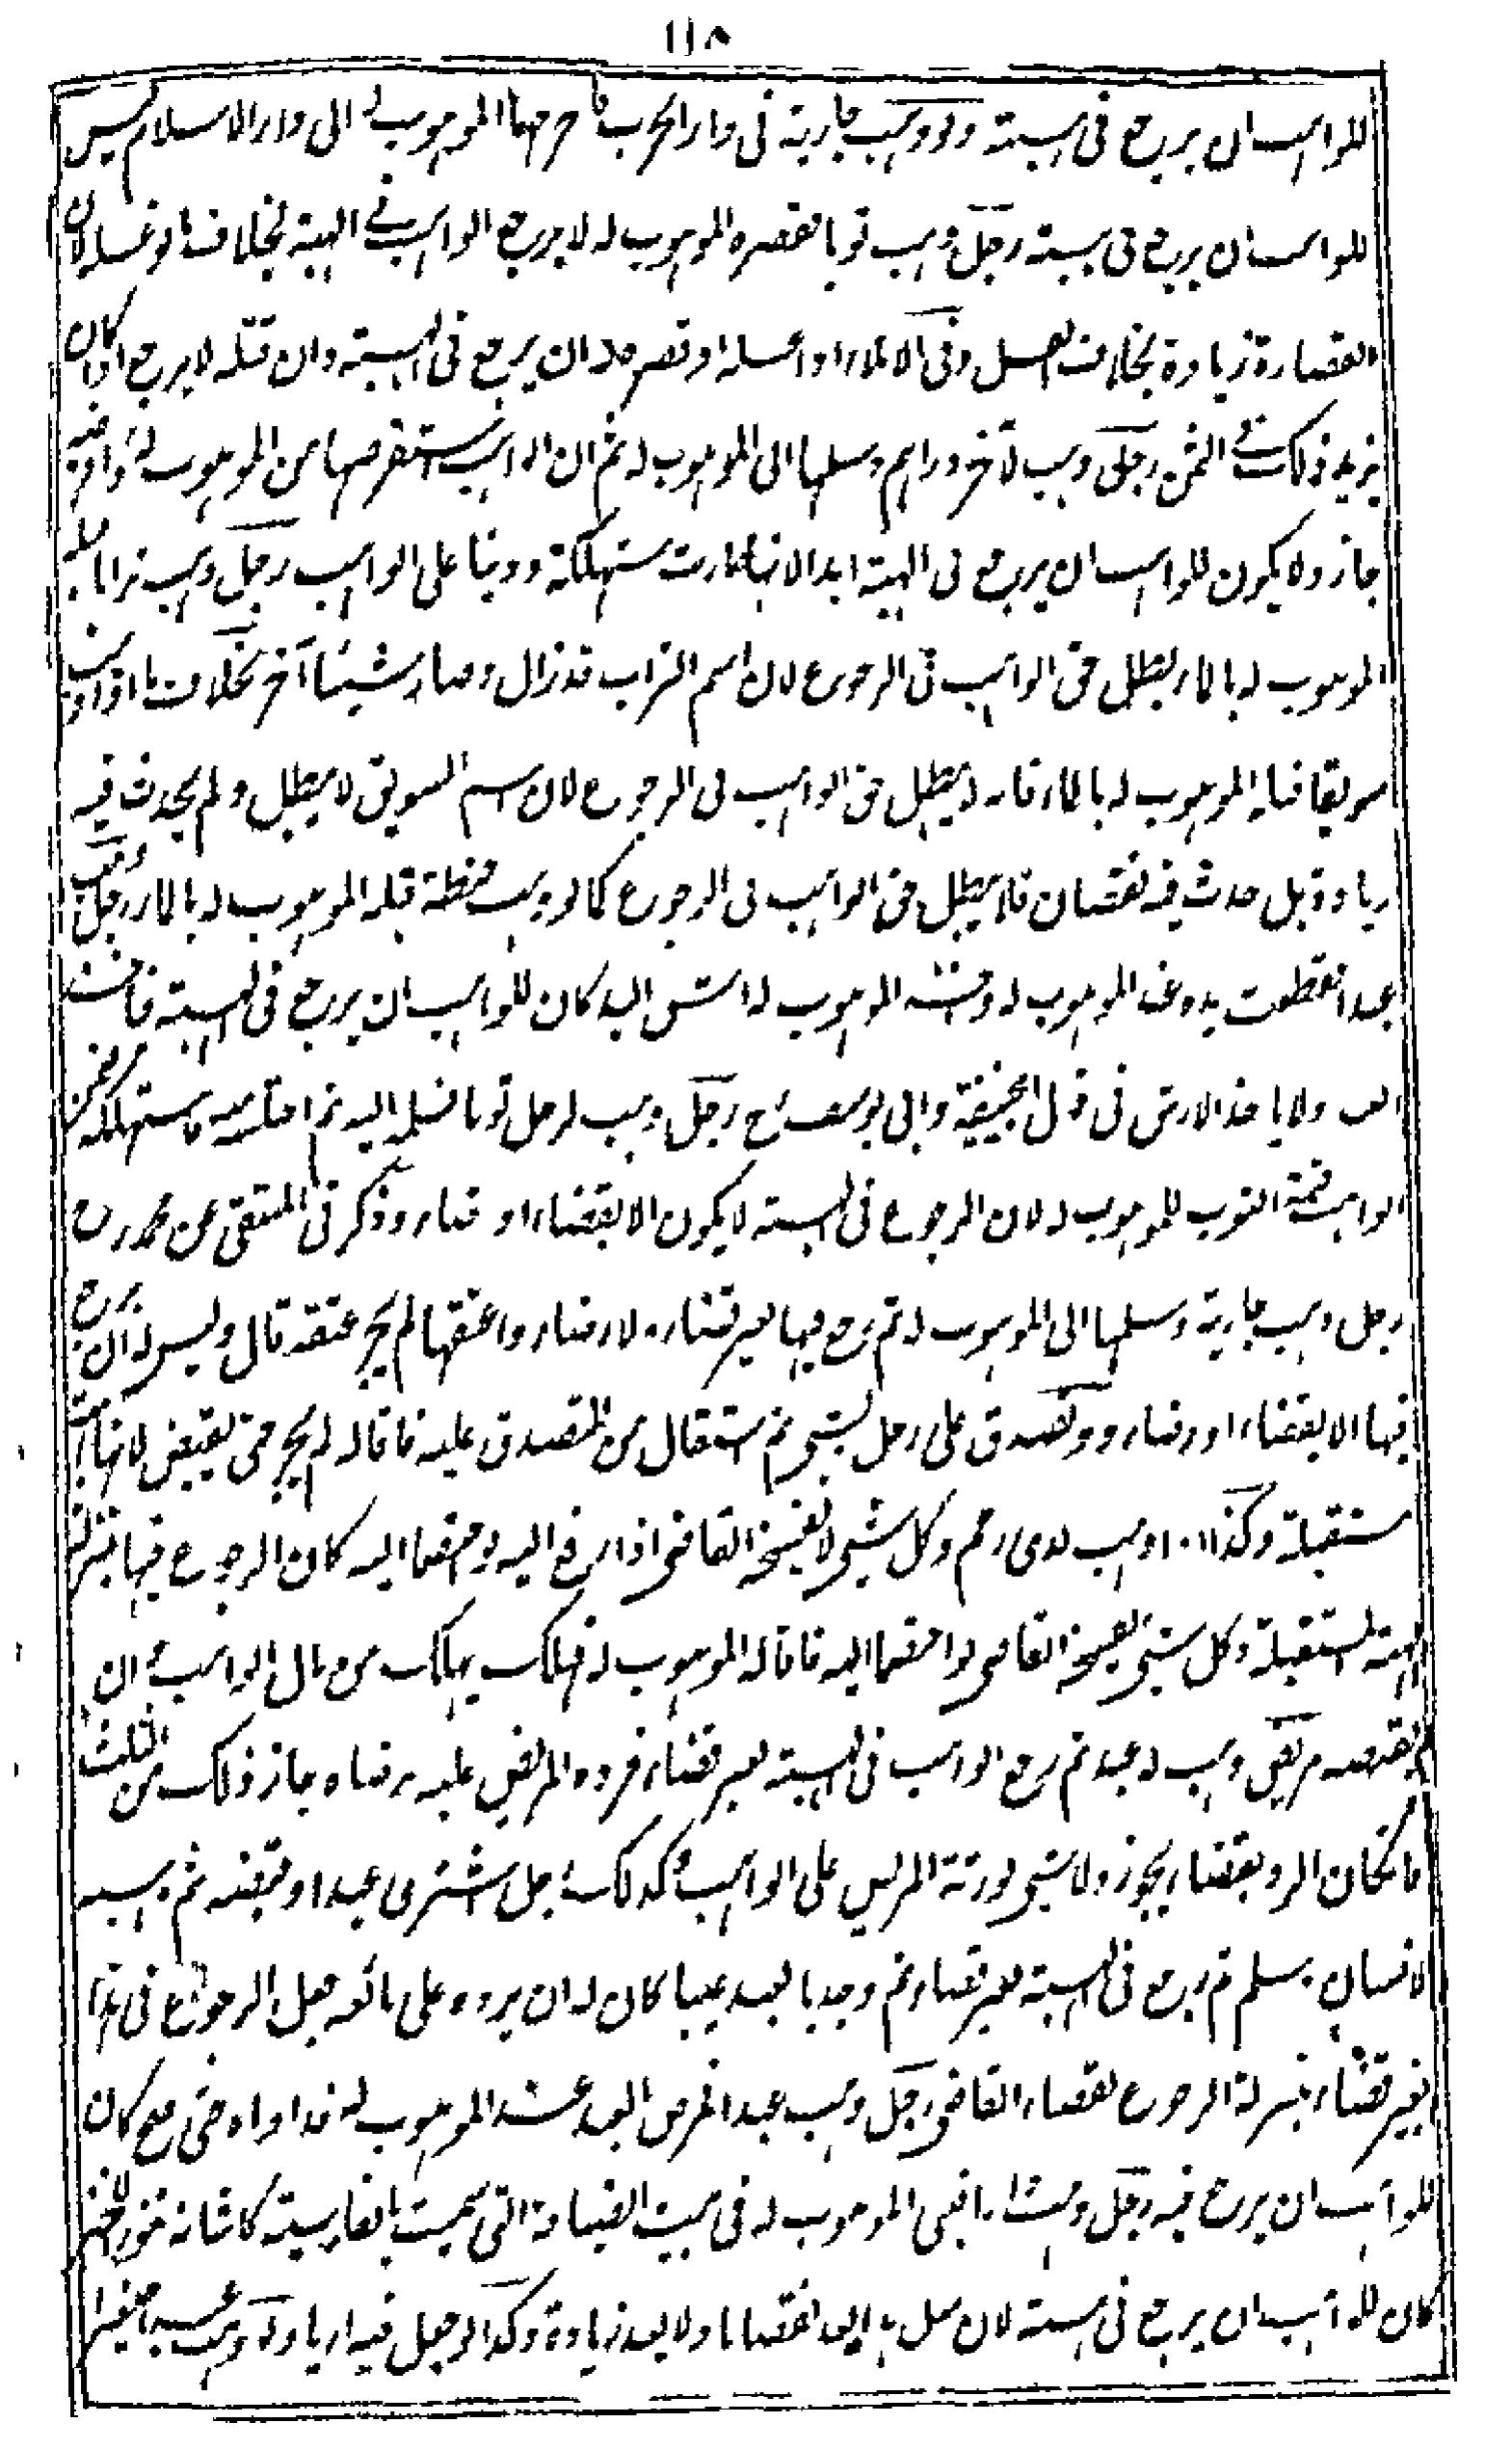 ١١٨
للواهب ان يرجع في الهبة ولو وهب جارية في دار الحرب فاخرجها الموهوب له الى دار الاسلام ليس
للواهب ان يرجع في هبته رجل وهب ثوبا فقصره الموهوب له لا يرجع الواهب في الهبة بخلاف ما لو غسله لان
القصارة زيادة بخلاف الغسل وفي الاملاء اذا غسله او قصره له ان يرجع في الهبة وان فتله لا يرجع اذا كان
يزيد ذلك في الثمن رجل وهب لآخر دراهم وسلمها الى الموهوب له ثم ان الواهب استقرضها من الموهوب له واقرضه
جاز ولا يكون للواهب ان يرجع في الهبة ابدا لانها صارت مستهلكة ودينا على الواهب رجل وهب ترابا بله
الموهوب له بالماء يبطل حق الواهب في الرجوع لان اسم التراب قد زال وصار شيئا آخر بخلاف ما اذا وهب
سويقا فبله الموهوب له بالماء فانه لا يبطل حق الواهب في الرجوع لان اسم السويق لا يبطل ولم يحدث فيه
زيادة بل حدث فيه نقصان فلا يبطل حق الواهب في الرجوع كما لو وهب حنطة فبلها الموهوب له بالماء رجل وهب
عبدا فقطعت يده عند الموهوب له واخذ الموهوب له ارش اليد كان للواهب ان يرجع في الهبة فياخذ
العبد ولا ياخذ الارش في قول ابيحنيفة وابي يوسف رح رجل وهب لرجل ثوبا فسلم اليه ثم اختلسه منه فاستهلكه ضمن
الواهب قيمة الثوب للموهوب له لان الرجوع في الهبة لا يكون الا بقضاء او رضاء وذكر في المنتقى عن محمد رح
رجل وهب جارية وسلمها الى الموهوب له ثم رجع فيها بغير قضاء ولا رضاء واعتقها لم يجز عتقه قال وليس له ان يرجع
فيها الا بقضاء او رضاء ولو تصدق على رجل بشيء ثم استقال من المتصدق عليه فاقاله لم يجز حتى يقبض لانها هبة
مستقبلة وكذا اذا وهب لذي رحم وكل شيء لا يفسخه القاضي اذا رفع اليه واختصما اليه كان الرجوع فيها بمنزلة
الهبة المستقبلة وكل شيء يفسخه القاضي اذا اختصما اليه فاقاله الموهوب له فهلك يهلك من مال الواهب وان
لم يقبضه مريض وهب له عبد ثم رجع الواهب في الهبة بغير قضاء فرده المريض عليه برضاه جاز ذلك من الثلث
فان كان الرد بقضاء يجوز ولا شيء لورثة المريض على الواهب وكذلك رجل اشترى عبدا وقبضه ثم وهبه
لانسان وسلم ثم رجع في الهبة بغير قضاء ثم وجد بالعبد عيبا كان له ان يرده على بائعه جعل الرجوع في هذا
بغير قضاء بمنزلة الرجوع بقضاء القاضي رجل وهب عبدا فمرض العبد عند الموهوب له فداواه حتى صح كان
للواهب ان يرجع فيه رجل وهب دارا فبنى الموهوب له في بيت الضيافة التي سميت بالفارسية كاشانه تنور الخبز
كان للواهب ان يرجع في هبته لان مثل هذا يعد نقصانا ولا يعد زيادة وكذا لو جعل فيه اريا ولو وهب عبدا صغيرا